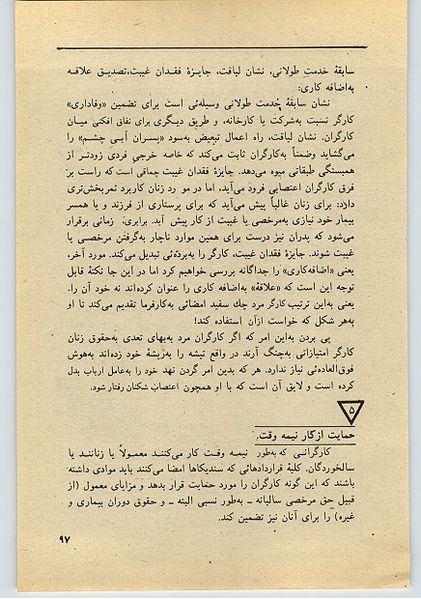 سابقهٔ خدمت طولانی، نشان لیاقت، جایزهٔ فقدان غیبت، تصدیق علاقه
به‌اضافه کاری:
نشان سابقهٔ خدمت طولانی وسیله‌ئی است برای تضمین «وفاداری»
کارگر نسبت به‌شرکت یا کارخانه، و طریق دیگری برای نفاق افکنی میان
کارگران. نشان لیاقت، راه اعمال تبعیض به‌سود «پسران آبی چشم» را
می‌گشاید وضمناً به‌کارگران ثابت می‌کند که خاصه خرجی فردی زودتر از
همبستگی طبقاتی میوه می‌دهد. جایزهٔ فقدان غیبت چماقی است که راست بر
فرق کارگران اعتصابی فرود می‌آید، اما در مورد زنان کاربرد ثمربخش‌تری
دارد: برای زنان غالباً پیش می‌آید که برای پرستاری از فرزند و یا همسر
بیمار خود نیازی به‌مرخصی یا غیبت از کار پیش آید. برابری، زمانی برقرار
می‌شود که پدران نیز درست برای همین موارد ناچار به‌گرفتن مرخصی یا
غیبت شوند. جایزهٔ فقدان غیبت، کارگر را به‌برده‌ئی تبدیل می‌کند. مورد آخر،
یعنی «اضافه‌کاری» را جداگانه بررسی خواهیم کرد اما در این جا نکتهٔ قابل
توجه این است که «علاقه» به‌اضافه کاری را عنوان کرده‌اند نه خود آن را.
یعنی به‌این ترتیب کارگر مرد چك سفید امضائی به‌کارفرما تقدیم می‌کند تا او
به‌هر شکل که خواست ازآن استفاده کند!
پی بردن به‌این امر که اگر کارگران مرد به‌بهای تعدی به‌حقوق زنان
کارگر امتیازاتی به‌چنگ آرند در واقع تیشه را به‌ریشهٔ خود زده‌اند به‌هوش
فوق‌العاده‌ئی نیاز ندارد. هر که بدین امر گردن نهد خود را به‌عامل ارباب بدل
کرده است و لایق آن است که با او همچون اعتصاب شکنان رفتار شود.
۵
حمایت از کار نیمه وقت.
کارگرانی که به‌طور نیمه وقت کار می‌کنند معمولاً یا زنانند یا
سالخوردگان. کلیهٔ قراردادهائی که سندیکاها امضا می‌کنند باید موادی داشته
باشند که این گونه کارگران را مورد حمایت قرار بدهد و مزایای معمول (از
قبیل حق مرخصی سالیانه ــ به‌طور نسبی البته ــ و حقوق دوران بیماری و
غیره) را برای آنان نیز تضمین کند.
۹۷